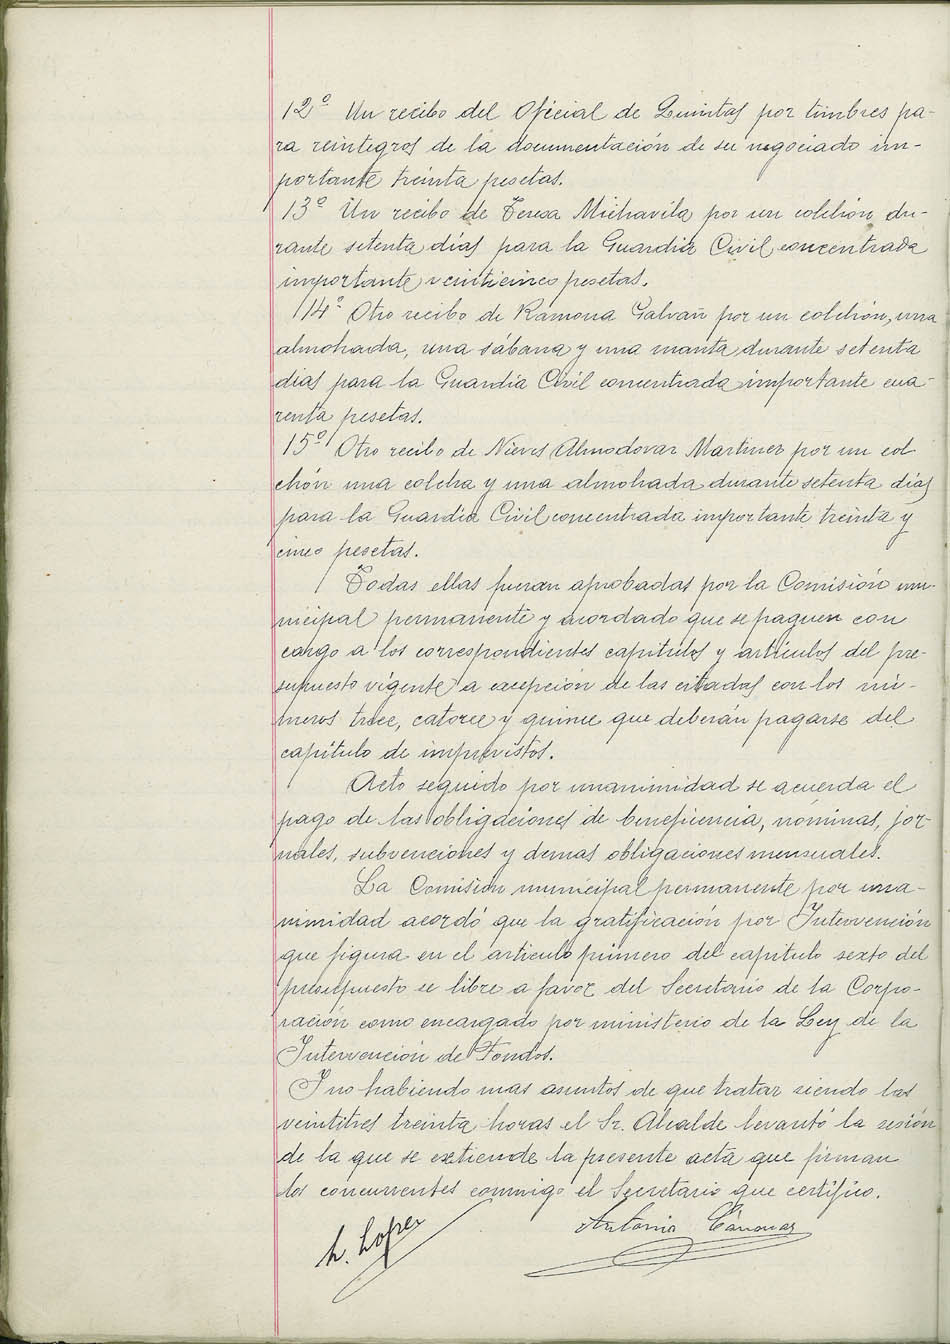 12º Un recibo del Oficial de Quintas por timbres pa-
ra reintegros de la documentación de su negociado im-
portante treinta pesetas.
13º Un recibo de Teresa Michavila por un colchón du-
rante setenta días para la Guardia Civil concentrada
importante veinticinco pesetas.
14º Otro recibo de Ramona Galvañ por un colchón, una
almohada, una sábana y una manta durante setenta
dias para la Guardia Civil concentrada importante cua-
renta pesetas.
15º Otro recibo de Nieves Almodovar Martinez por un col
chón una colcha y una almohada durante setenta días
para la Guardia Civil concentrada importante treinta y
cinco pesetas.
Todas ellas fueran aprobadas por la Comisión mu-
nicipal permanente y acordado que se paguen con
cargo a los correspondientes capitulos y artículos del pre-
supuesto vigente a excepción de las citadas con los nú-
meros trece, catorce y quince que deberán pagarse del
capítulo de imprevistos.
Acto seguido por unanimidad se acuerda el
pago de las obligaciones de beneficencia, nóminas, jor-
nales, subvenciones y demas obligaciones mensuales.
La Comision municipal permanente por una-
nimidad acordó que la gratificación por Intervención
que figura en el articulo primero del capitulo sexto del
presupuesto se libre a favor del Secretario de la Corpo-
ración como encargado por ministerio de la Ley de la
Intervención de Fondos.
I no habiendo mas asuntos de que tratar siendo las
veintitres treinta horas el Sr. Alcalde levantó la sesión
de la que se extiende la presente acta que firman
los concurrentes conmigo el Secretario que certifico.
L. Lopez
Antonio Cánovas